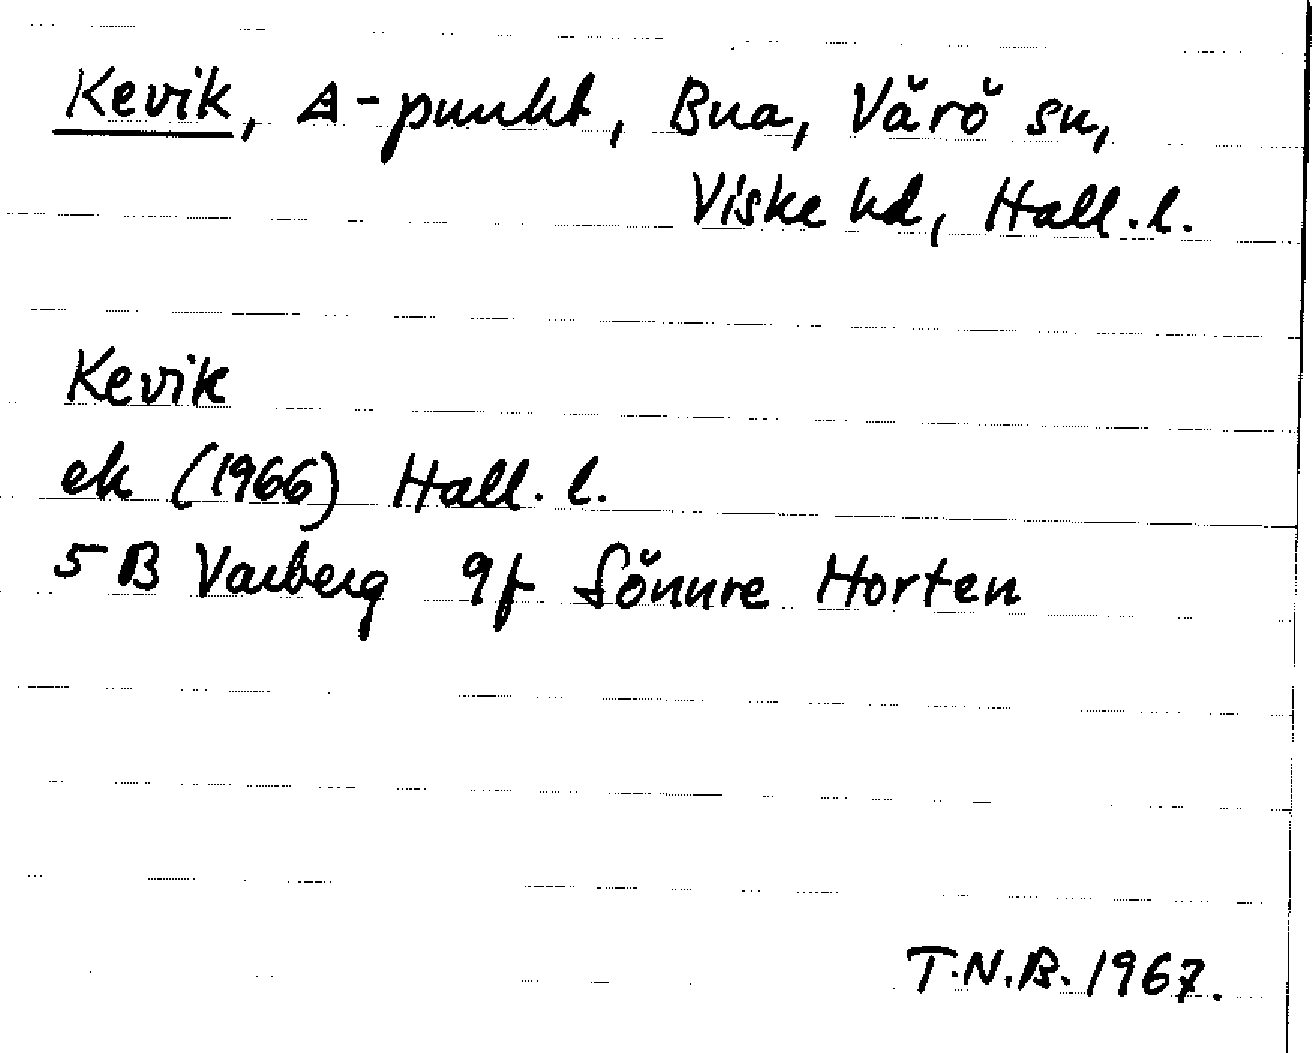 Kevik, Δ-punkt, Bua, Värö sn,
Viske hd, Hall. l.
Kevik
ek (1966) Hall. l.
5 B Varberg 9f Sönnre Horten
T.N.B. 1967.